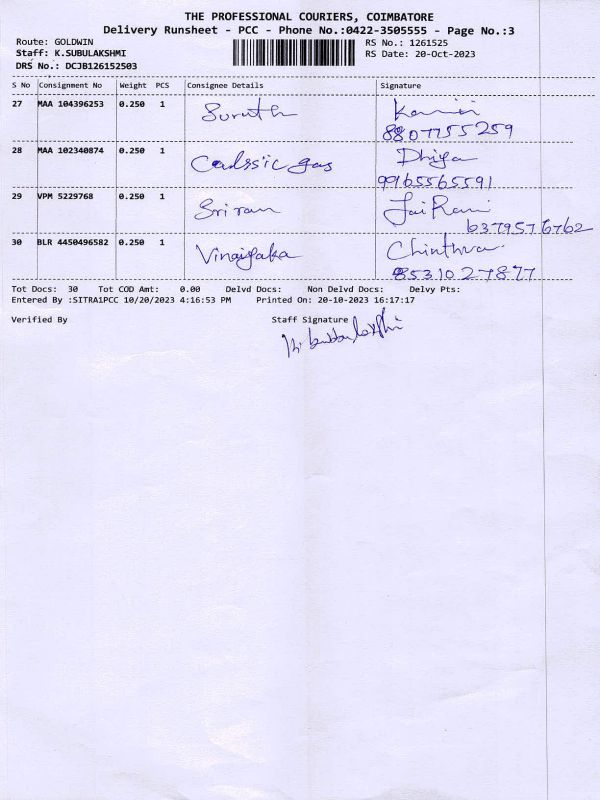 THE PROFESSIONAL COURIERS, COIMBATORE
Delivery Runsheet - PCC - Phone No.:0422-3505555 - Page No.:3
Route: GOLDWIN RS No.: 1261525
Staff: K.SUBULAKSHMI RS Date: 20-Oct-2023
DRS No.: DCJB126152503
S No Consignment No Weight PCS Consignee Details Signature
27 MAA 104396253 0.250 1
8807755259
28 MAA 102340874 0.250 1 gas Dhiya
9965565591
29 VPM 5229768 0.250 1 Sri ram Jai Rani
6379576762
30 BLR 4450496582 0.250 1 Vinaiyaka
8531027877
Tot Docs: 30 Tot COD Amt: 0.00 Delvd Docs: Non Delvd Docs: Delvy Pts:
Entered By :SITRA1PCC 10/20/2023 4:16:53 PM Printed On: 20-10-2023 16:17:17
Verified By Staff Signature